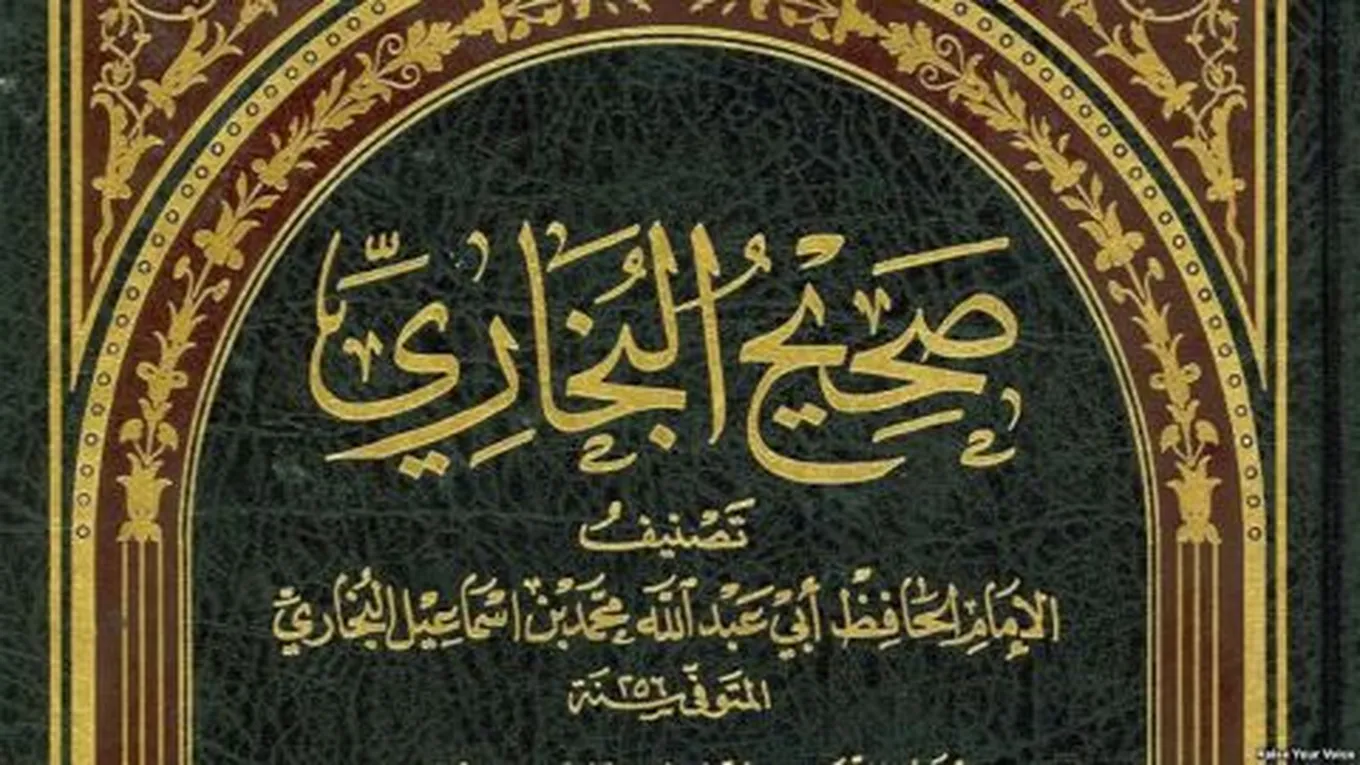 صَحِيحُ البُخَارِيِّ
تَصْنِيفُ
الإِمَامِ الحَافِظْ أَبِيْ عَبْدِ اللَّه مُحَمَّدْ بْنِ اسْمَاعِيْل البُخَارِيِّ
المتَوَفَّىٰ سَنَة ٢٥٦
Raise Your Voice